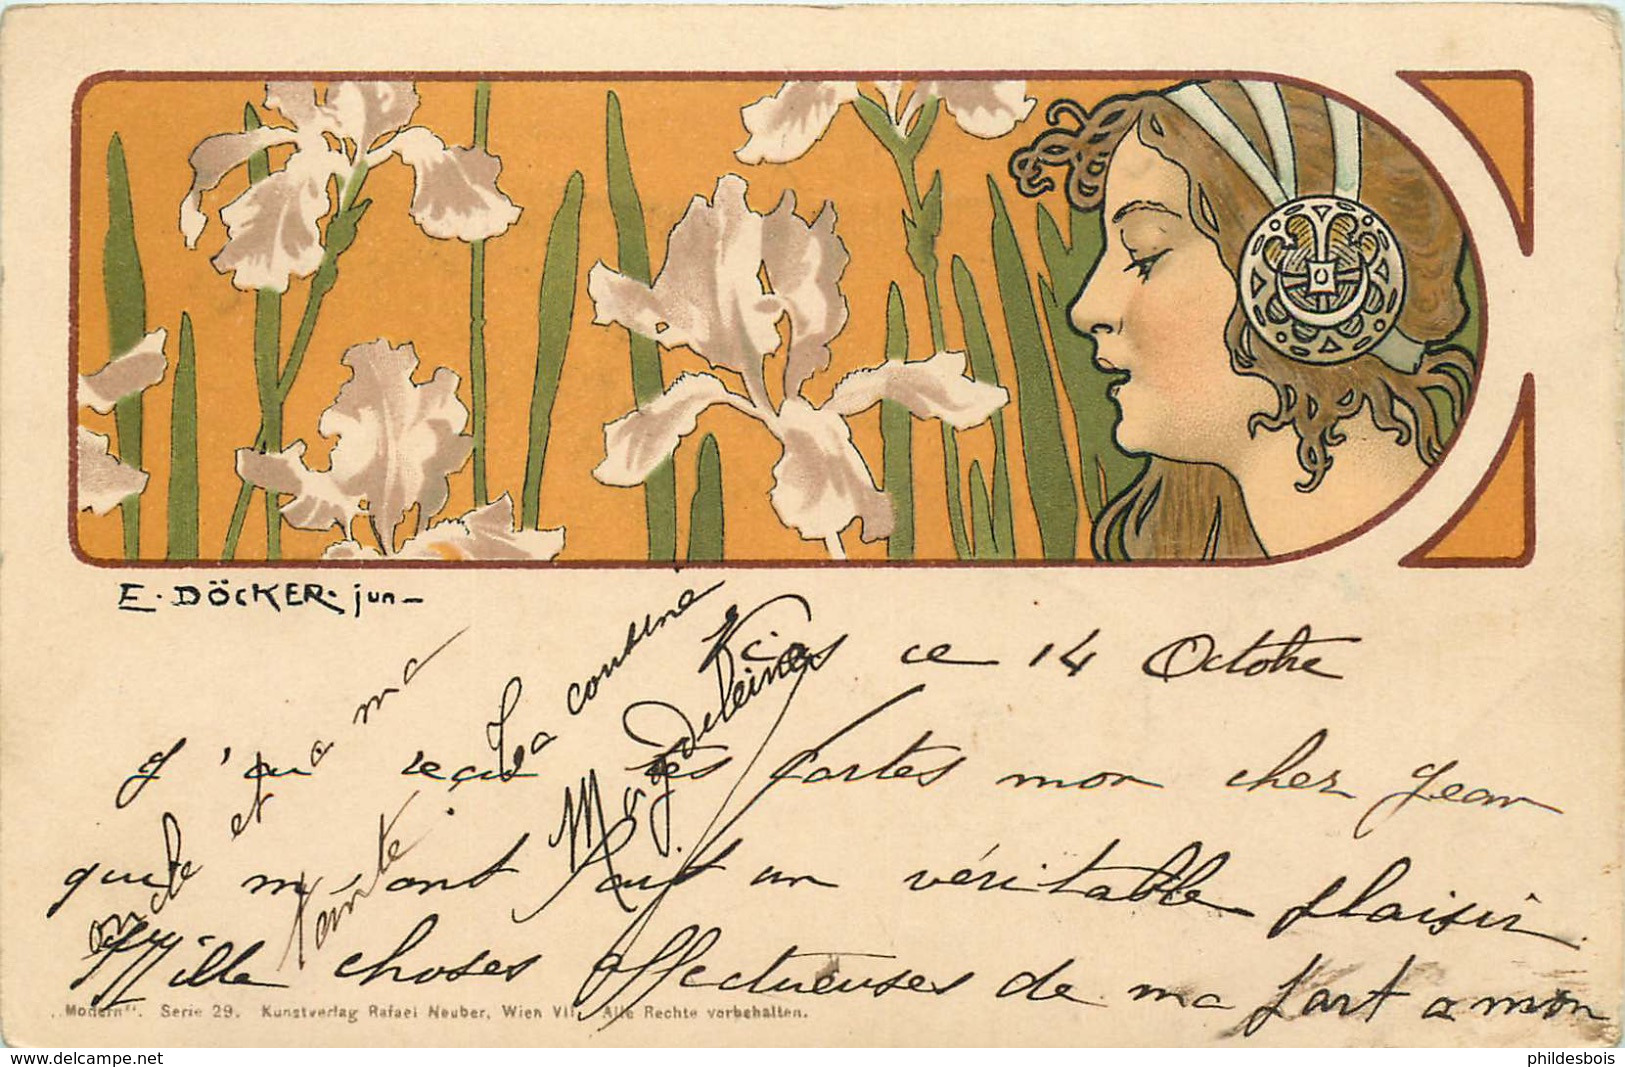 E. DÖCKER. jun-
Vias ce 14 Octobre
J'ai reçu tes cartes mon cher Jean
qui m'ont fait un véritable plaisir
Mille choses affectueuses de ma part a mon
oncle et a ma
tante.
Ta cousine
Magdeleine
„Modern". Serie 29. Kunstverlag Rafael Neuber, Wien VII. Alle Rechte vorbehalten.
www.delcampe.net
phildesbois